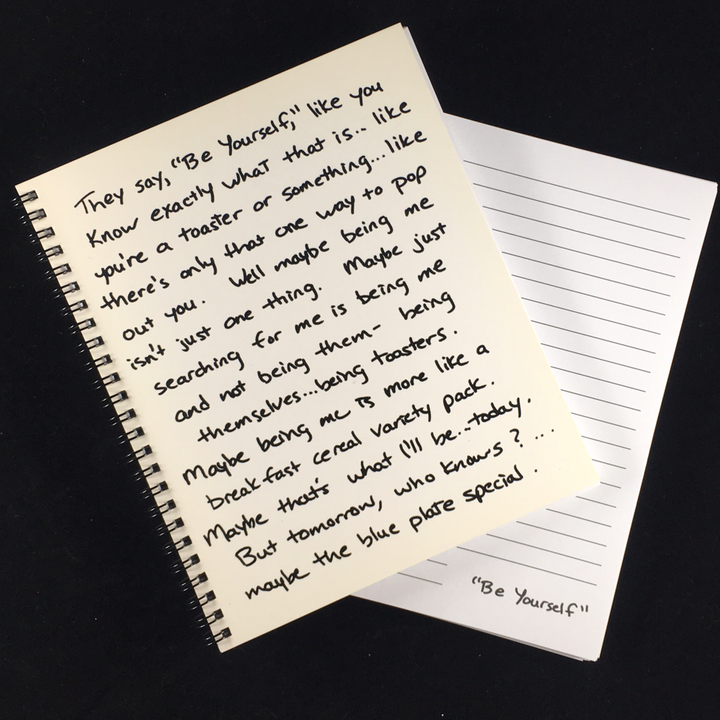 They say, "Be Yourself," like you
know exactly what that is.. like
you're a toaster or something...like
there's only that one way to pop
out you. Well maybe being me
isn't just one thing. Maybe just
searching for me is being me
and not being them- being
themselves...being toasters.
Maybe being me is more like a
breakfast cereal variety pack.
Maybe that's what I'll be...today.
But tomorrow, who knows? ....
maybe the blue plate special.
"Be Yourself"